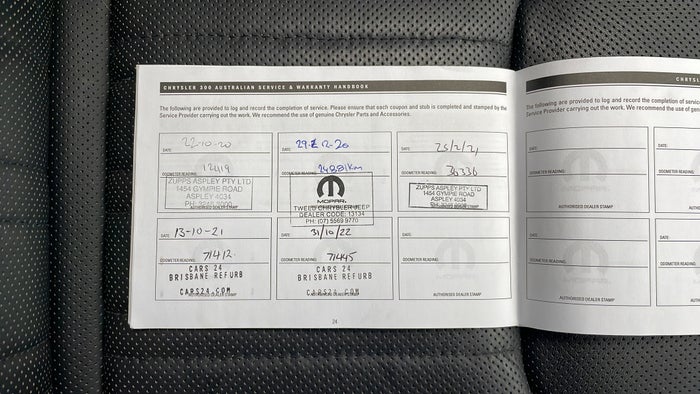 CHRYSLER 300 AUSTRALIAN SERVICE & WARRANTY HANDBOOK
The following are provided to log and record the completion of service. Please ensure that each coupon and stub is completed and stamped by the
Service Provider carrying out the work. We recommend the use of genuine Chrysler Parts and Accessories.
DATE: 22-10-20
ODOMETER READING:
ZUPPS ASPLEY PTY LTD
1454 GYMPIE ROAD
ASPLEY 4034
AUTHORISED DEALER STAMP
DATE: 12-20
ODOMETER READING:
MOPAR
TWEED CHRYSLER JEEP
DEALER CODE: 13134
PH: (07) 5569 9770
DATE: 25/2/21
ODOMETER READING: 30336
ZUPPS ASPLEY PTY LTD
1454 GYMPIE ROAD
ASPLEY 4034
AUTHORISED DEALER STAMP
DATE: 13-10-21
ODOMETER READING: 71412
CARS 24
BRISBANE REFURB
CARS24.COM
AUTHORISED DEALER STAMP
DATE: 31/10/22
ODOMETER READING: 71445
CARS 24
BRISBANE REFURB
CARS24.COM
AUTHORISED DEALER STAMP
DATE:
ODOMETER READING:
AUTHORISED DEALER STAMP
24
CHRYSL
The following are provided to log and record the completion of servic
Service Provider carrying out the work. We recommend the use of genu
DATE:
ODOMETER READING:
AUTHORISED DEALER STAMP
DATE:
ODOM
DATE:
ODOMETER READING:
AUTHORISED DEALER STAMP
DATE:
ODOM